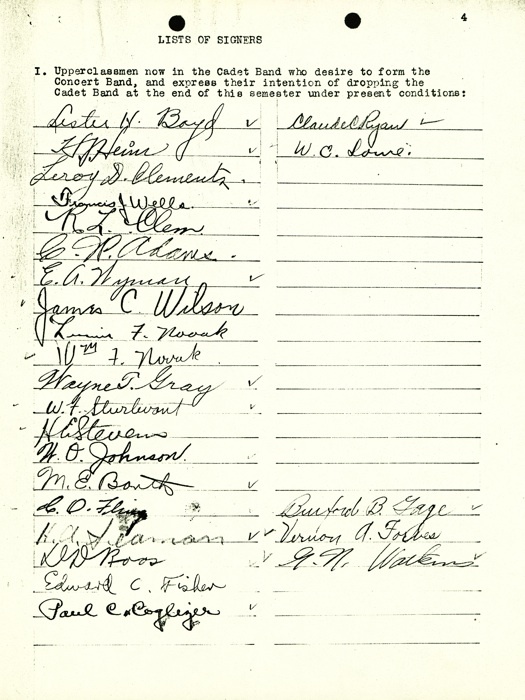 4
LISTS OF SIGNERS
I. Upperclassmen now in the Cadet Band who desire to form the
Concert Band, and express their intention of dropping the
Cadet Band at the end of this semester under present conditions:
Lester H. Boyd
H J Heim
Leroy D. Clements.
Francis J Wells
R. L. Clem
C. R. Adams.
E. A. Wyman
James C. Wilson
F. Novak
Wm F. Novak
Wayne T. Gray
W. F. Sturtevant
H E Stevens
W. O. Johnson.
M. E. Barth
C. O.
H. A. Seaman
Roos
Edward C. Fisher
Paul C.
Claude C Ryan
W. C. Lowe.
Buxford B. Gage
Vernon A. Forbes
G. N. Watkins